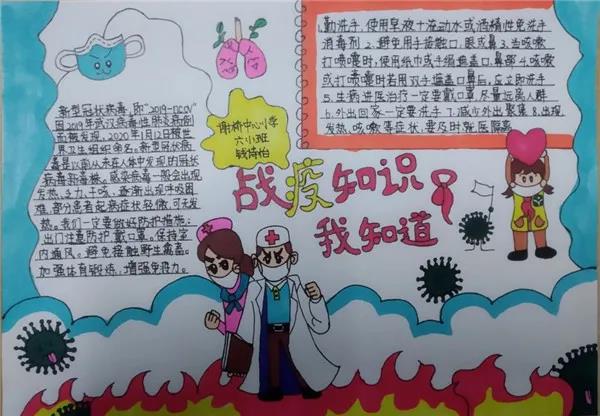 新型冠状病毒,即"2019-nCoV"
因2019年武汉病毒性肺炎病例
而被发现,2020年1月12日被世
界卫生组织命名。新型冠状病
毒是以前从未在人体中发现的冠状
病毒新毒株。感染病毒一般会出现
发热、乏力、干咳、逐渐出现呼吸困
难,部分患者起病症状轻微,可无发
热。我们一定要做好防护措施:
出门注意防护,戴口罩。保持室
内通风。避免接触野生禽畜。
加强体育锻炼,增强免疫力。
谢桥中心小学
六小班
钱梓怡
1.勤洗手,使用皂液+流动水或酒精性免洗手
消毒剂 2.避免用手接触口、眼或鼻 3.当咳嗽
打喷嚏时,使用纸巾或手绢遮盖口、鼻部 4.咳嗽
或打喷嚏时若用双手遮盖口鼻后,应立即洗手
5.生病进医治疗一定要戴口罩尽量远离人群
6.外出回家一定要洗手 7.减少外出聚集 8.出现
发热、咳嗽等症状,要及时就医隔离
战疫知识
我知道!